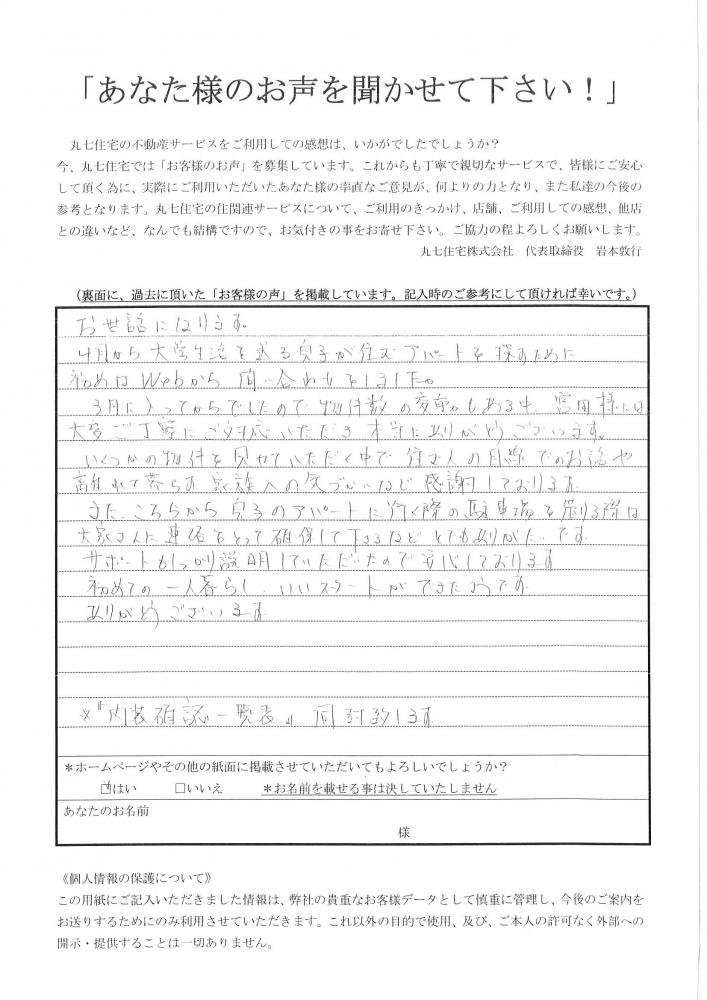 「あなた様のお声を聞かせて下さい！」
丸七住宅の不動産サービスをご利用しての感想は、いかがでしたでしょうか？
今、丸七住宅では「お客様のお声」を募集しています。これからも丁寧で親切なサービスで、皆様にご安心
して頂く為に、実際にご利用いただいたあなた様の率直なご意見が、何よりの力となり、また私達の今後の
参考となります。丸七住宅の住関連サービスについて、ご利用のきっかけ、店舗、ご利用しての感想、他店
との違いなど、なんでも結構ですので、お気付きの事をお寄せ下さい。ご協力の程よろしくお願いします。
丸七住宅株式会社　代表取締役　岩本敦行
（裏面に、過去に頂いた「お客様の声」を掲載しています。記入時のご参考にして頂ければ幸いです。）
お世話になります。
4月から大学生活を送る息子が住むアパートを探すために
初めはWebから問い合わせをしました。
3月に入ってからでしたので物件数の変動もある中、宮田様には
大変ご丁寧にご対応いただき本当にありがとうございます。
いくつかの物件を見せていただく中で住む人の目線でのお話や
離れて暮らす家族への気づかいなど感謝しております。
また、こちらから息子のアパートに行く際の駐車場を借りる際は
大家さんに連絡をとって確保して下さるなどとてもありがたいです。
サポートもしっかり説明していただいたので安心しております
初めての一人暮らし、いいスタートができたようです
ありがとうございます
※『内装確認一覧表』同封致します
*ホームページやその他の紙面に掲載させていただいてもよろしいでしょうか？
☑はい　□いいえ　*お名前を載せる事は決していたしません
あなたのお名前
様
《個人情報の保護について》
この用紙にご記入いただきました情報は、弊社の貴重なお客様データとして慎重に管理し、今後のご案内を
お送りするためにのみ利用させていただきます。これ以外の目的で使用、及び、ご本人の許可なく外部への
開示・提供することは一切ありません。